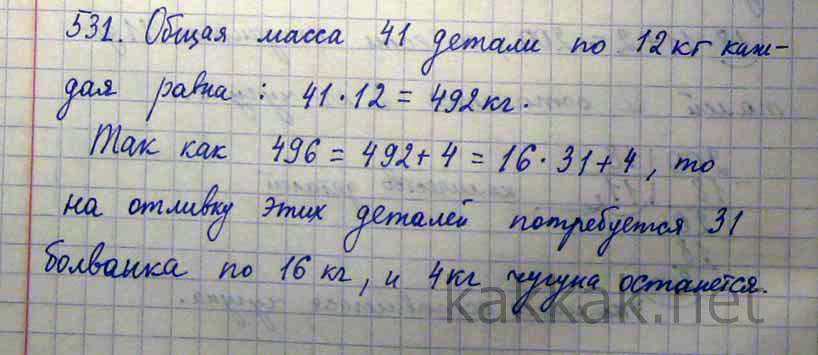 531. Общая масса 41 детали по 12 кг каж-
дая равна: 41 · 12 = 492 кг.
Так как 496 = 492 + 4 = 16 · 31 + 4, то
на отливку этих деталей потребуется 31
болванка по 16 кг, и 4 кг чугуна останется.
kakkak.net